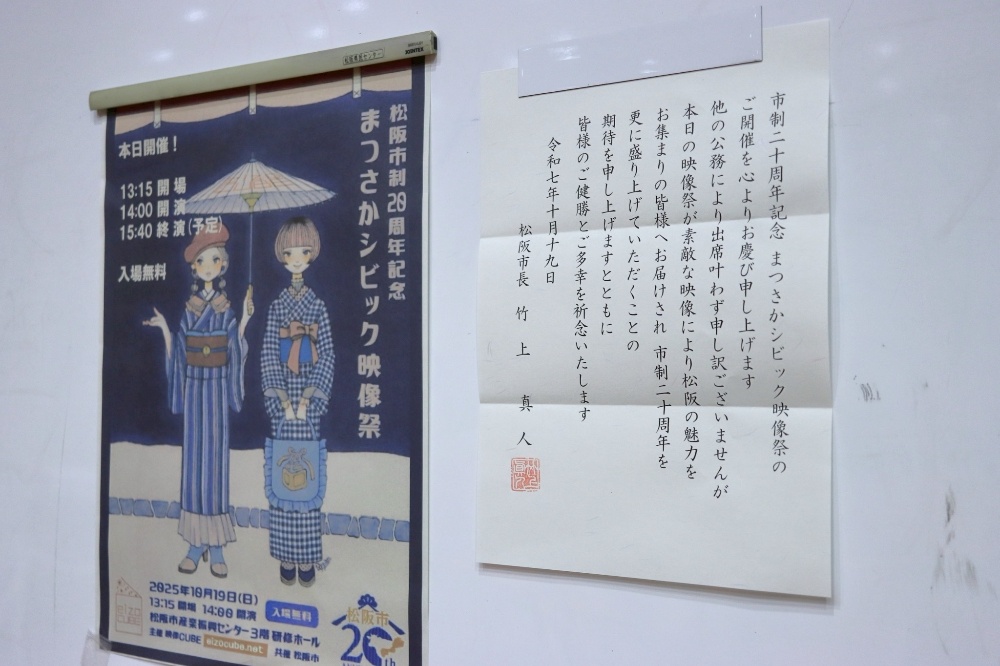 松阪市民センター
JOINTEX
松阪市制20周年記念
まつさかシビック映像祭
本日開催！
13:15 開場
14:00 開演
15:40 終演(予定)
入場無料
EIZO
CUBE
2025年10月19日(日)
13:15 開場 14:00 開演
入場無料
松阪市産業振興センター3階 研修ホール
主催 映像CUBE eizocube.net 共催 松阪市
松阪市
20th
市制二十周年記念 まつさかシビック映像祭の
ご開催を心よりお慶び申し上げます
他の公務により出席叶わず申し訳ございませんが
本日の映像祭が素敵な映像により松阪の魅力を
お集まりの皆様へお届けされ 市制二十周年を
更に盛り上げていただくことの
期待を申し上げますとともに
皆様のご健勝とご多幸を祈念いたします
令和七年十月十九日
松阪市長 竹上 真人